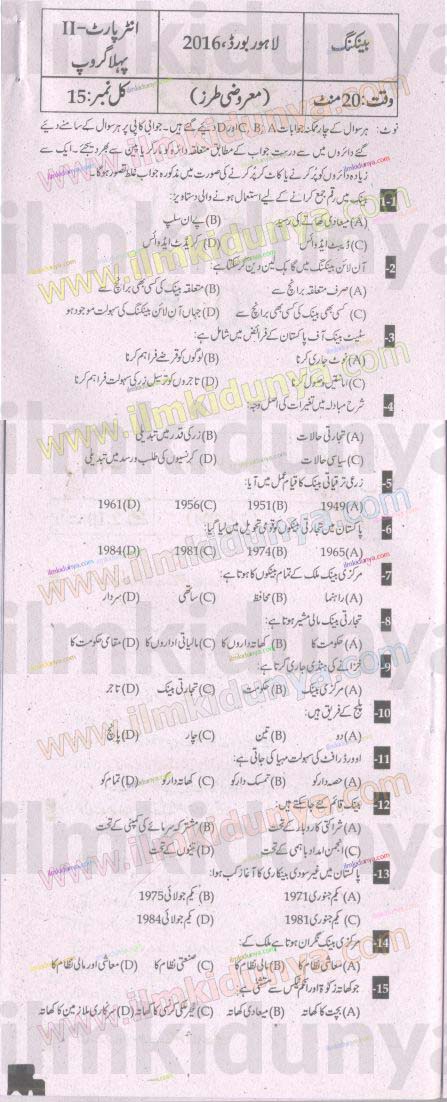 بینکنگ
لاہور بورڈ، 2016
انٹر پارٹ-II
پہلا گروپ
وقت: 20 منٹ
(معروضی طرز)
کل نمبر: 15
نوٹ: ہر سوال کے چار ممکنہ جوابات A، B، C اور D دیئے گئے ہیں۔ جوابی کاپی پر ہر سوال کے سامنے دیئے
گئے دائروں میں سے درست جواب کے مطابق متعلقہ دائرہ کو مارکر یا پین سے بھر دیجئے۔ ایک سے
زیادہ دائروں کو پُر کرنے یا کاٹ کر پُر کرنے کی صورت میں مذکورہ جواب غلط تصور ہوگا۔
1-1 بینک میں رقم جمع کرانے کے لیے استعمال ہونے والی دستاویز:
(A) میعادی کھاتے کی رسید (B) پے ان سلپ
(C) ڈیبٹ ایڈوائس (D) کریڈٹ ایڈوائس
-2 آن لائن بینکنگ میں گاہک لین دین کر سکتا ہے:
(A) صرف متعلقہ برانچ سے (B) متعلقہ بینک کی کسی بھی برانچ سے
(C) کسی بھی بینک کی کسی بھی برانچ سے (D) جہاں آن لائن بینکنگ کی سہولت موجود ہو
-3 سٹیٹ بینک آف پاکستان کے فرائض میں شامل ہے:
(A) نوٹ جاری کرنا (B) لوگوں کو قرضے فراہم کرنا
(C) امانتیں وصول کرنا (D) تاجروں کو ترسیل زر کی سہولت فراہم کرنا
-4 شرح مبادلہ میں تغیرات کی اصل وجہ:
(A) تجارتی حالات (B) زر کی قدر میں تبدیلی
(C) سیاسی حالات (D) کرنسیوں کی طلب و رسد میں تبدیلی
-5 زرعی ترقیاتی بینک کا قیام عمل میں آیا:
(A) 1949 (B) 1951 (C) 1956 (D) 1961
-6 پاکستان میں تجارتی بینکوں کو قومی تحویل میں لیا گیا:
(A) 1965 (B) 1974 (C) 1981 (D) 1984
-7 مرکزی بینک ملک کے تمام بینکوں کا ہوتا ہے:
(A) راہنما (B) محافظ (C) ساتھی (D) سردار
-8 تجارتی بینک مالی مشیر ہوتا ہے:
(A) حکومت کا (B) کھاتہ داروں کا (C) مالیاتی اداروں کا (D) مقامی حکومت کا
-9 خزانے کی ہنڈی جاری کرتا ہے:
(A) مرکزی بینک (B) حکومت (C) تجارتی بینک (D) تاجر
-10 پلج کے فریق ہیں:
(A) دو (B) تین (C) چار (D) پانچ
-11 اوورڈرافٹ کی سہولت مہیا کی جاتی ہے:
(A) حصہ دار کو (B) تمسک دار کو (C) کھاتہ دار کو (D) تمام کو
-12 بینک قائم کئے جا سکتے ہیں:
(A) شراکتی کاروبار کے تحت (B) مشترکہ سرمائے کی کمپنی کے تحت
(C) انجمن امداد باہمی کے تحت (D) تینوں کے تحت
-13 پاکستان میں غیر سودی بینکاری کا آغاز کب ہوا:
(A) یکم جنوری 1971 (B) یکم جولائی 1975
(C) یکم جنوری 1981 (D) یکم جولائی 1984
-14 مرکزی بینک نگران ہوتا ہے ملک کے:
(A) معاشی نظام کا (B) مالی نظام کا (C) صنعتی نظام کا (D) معاشی اور مالی نظام کا
-15 جو کھاتہ زکوٰۃ اور انکم ٹیکس سے مستثنیٰ ہے:
(A) بچت کا کھاتہ (B) میعادی کھاتہ (C) غیر ملکی کرنسی کا کھاتہ (D) سرکاری ملازمین کا کھاتہ
www.ilmkidunya.com
ilmkidunya.com